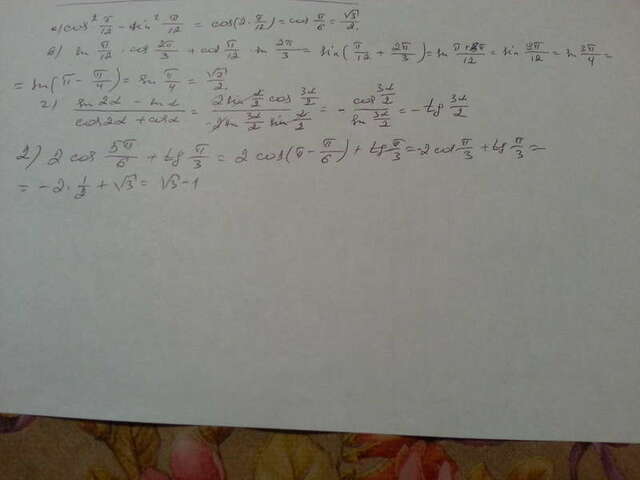 а) cos² π/12 - sin² π/12 = cos(2·π/12) = cos π/6 = √3/2.
в) sin π/12 · cos 2π/3 + cos π/12 · sin 2π/3 = sin(π/12 + 2π/3) = sin π+8π/12 = sin 9π/12 = sin 3π/4 =
= sin(π - π/4) = sin π/4 = √2/2.
г) sin 2α - sin α / cos 2α + cos α = 2 sin α/2 cos 3α/2 / -2 sin 3α/2 sin α/2 = - cos 3α/2 / sin 3α/2 = - tg 3α/2
2) 2 cos 5π/6 + tg π/3 = 2 cos(π - π/6) + tg π/3 = -2 cos π/3 + tg π/3 =
= -2 · 1/2 + √3 = √3 - 1